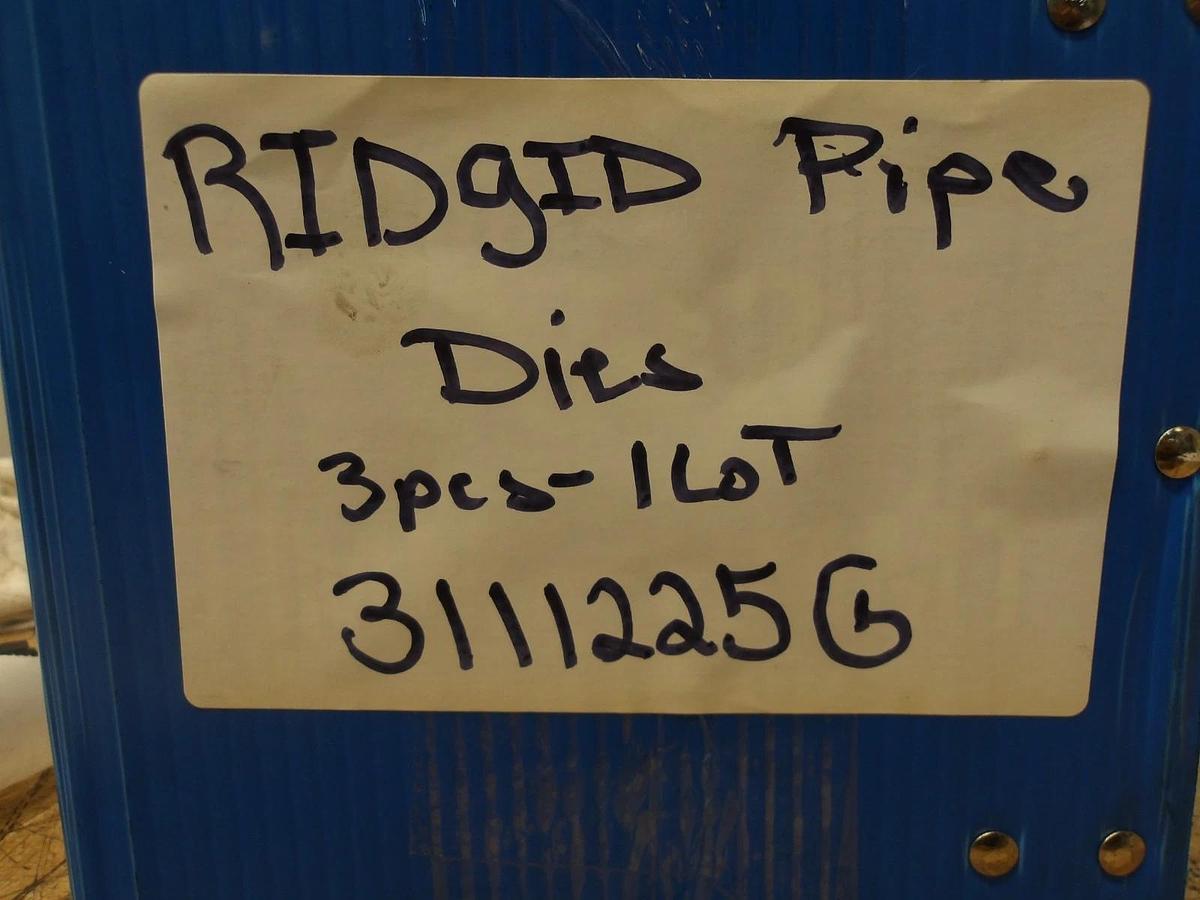 RIDgID Pipe
Dies
3pcs-1LoT
3111225G